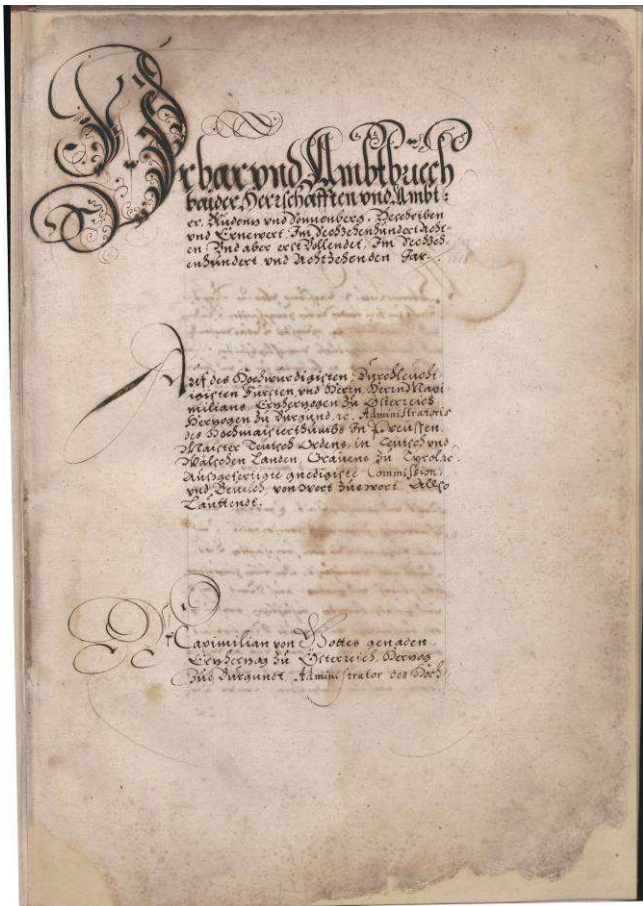 Urbar und Ambtbuech
baider Herrschafften und Ambt:
er, Pludentz und Sonnenberg. Beschriben
und Ernewert. Im Sechzehenhundert Acht-
en Und aber erst Vollendet, Im Sechzeh-
enhundert und Achtzehenden Jar.
Auf des Hochwürdigisten, Durchleücht-
igisten Fürsten, und Herrn, Herrn Maxi-
milians Ertzhertzogen zu Österreich
Hertzogen zu Burgund, rc. Administratorn
des Hochmaisterthumbs In Preussen,
Maister Teutsch Ordens, in Teutsch und
Wälschen Landen, Gravens zu Tyrol, rc.
Ausgefertigte gnedigiste Commission
und Bevelch von wort zue wort Allso
Lauttendt.
Maximilian von Gottes genaden
Ertzhertzog zu Österreich, Hertzog
zue Burgundt, Administrator des Hoch-